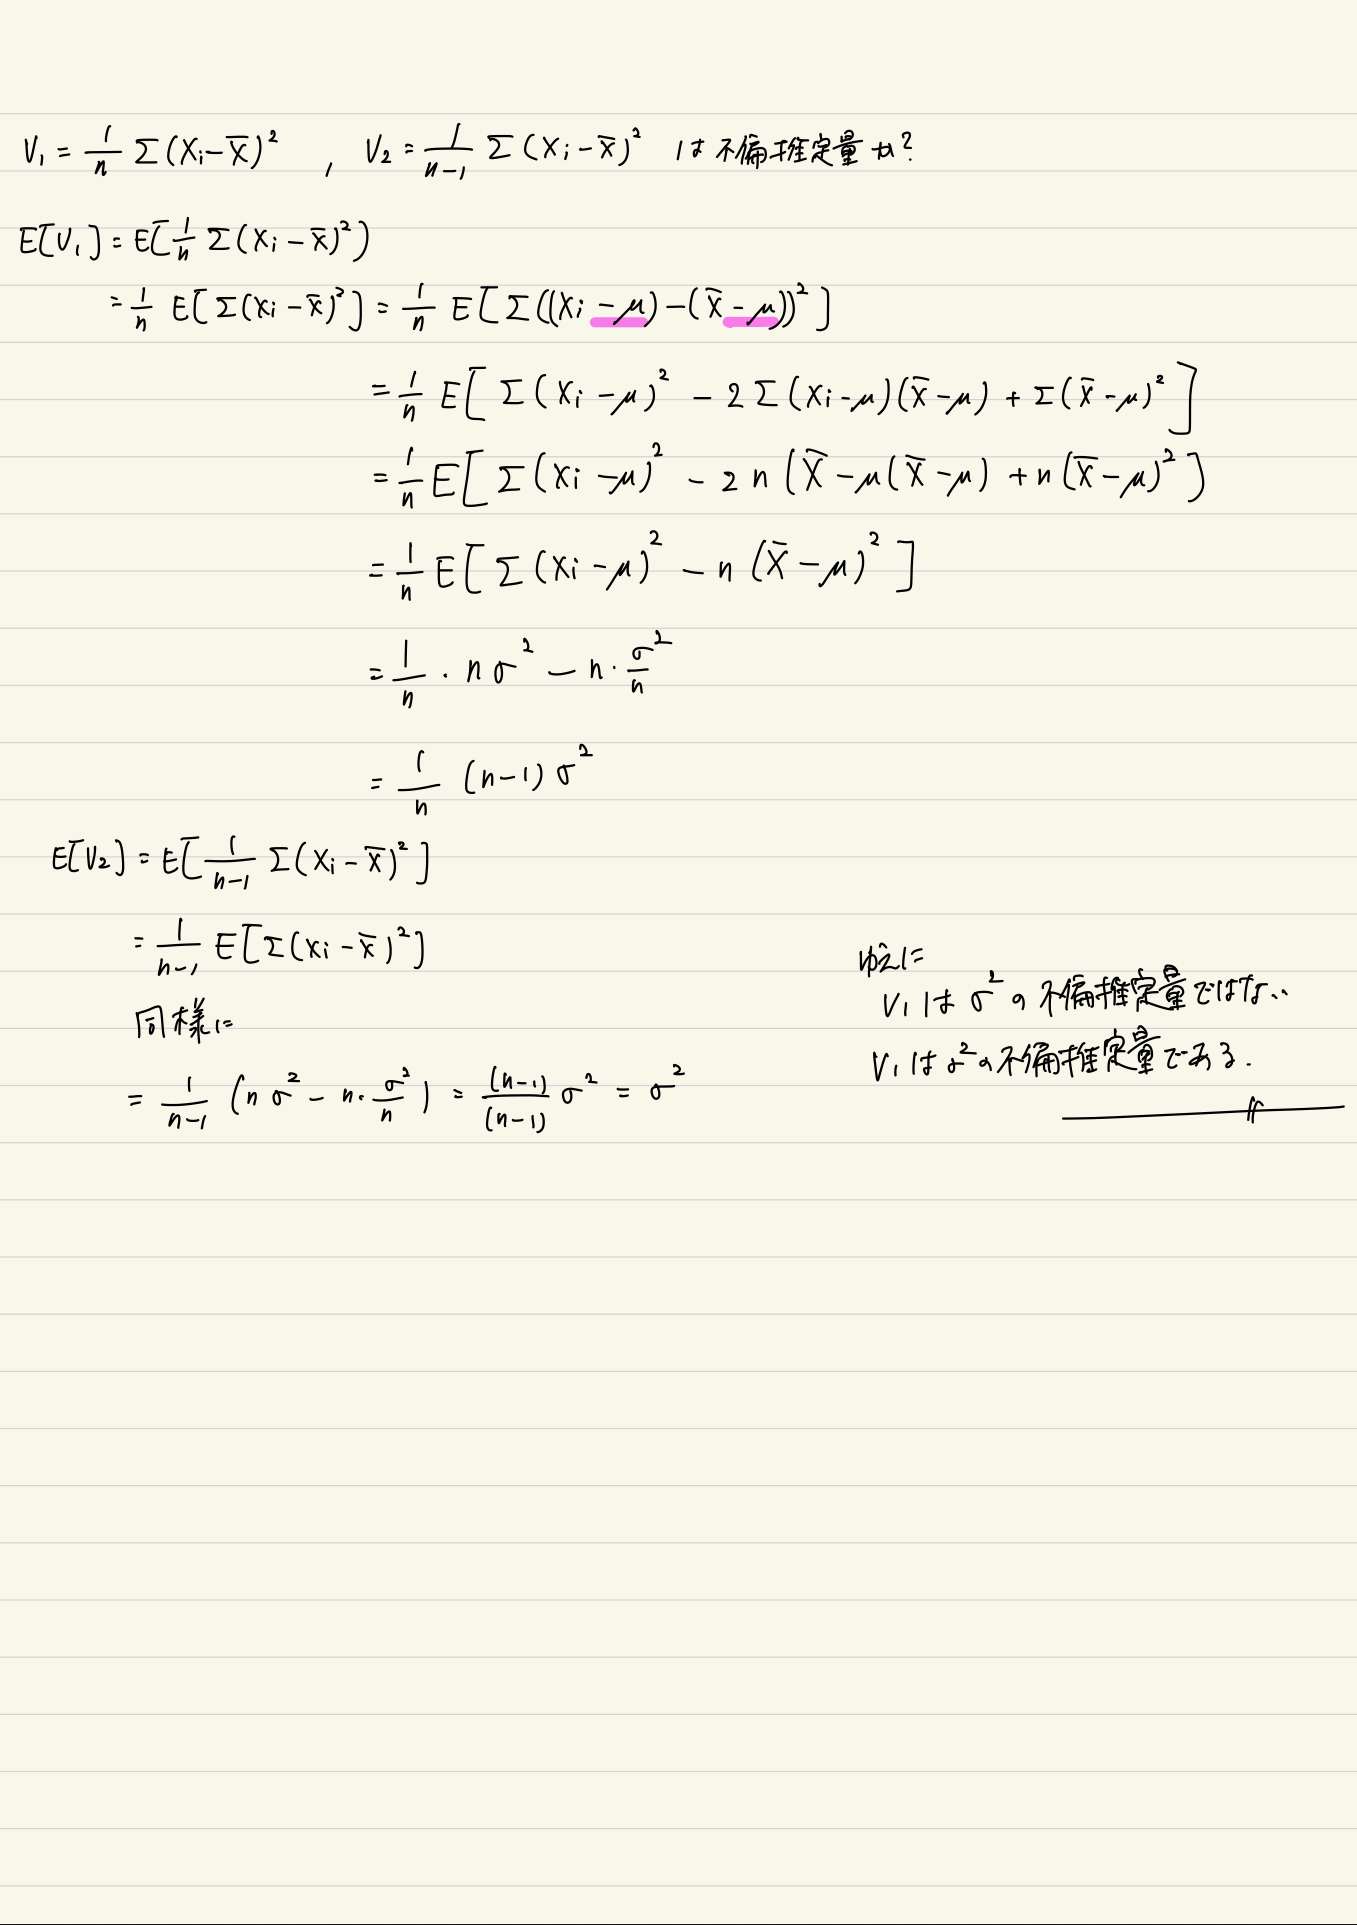 V₁ = 1/n Σ(Xi−X̄)² , V₂ = 1/(n−1) Σ(Xi−X̄)² は不偏推定量か?
E[V₁] = E[1/n Σ(Xi−X̄)²)
= 1/n E[Σ(Xi−X̄)²] = 1/n E[Σ((Xi−μ)−(X̄−μ))²]
= 1/n E[Σ(Xi−μ)² − 2Σ(Xi−μ)(X̄−μ) + Σ(X̄−μ)²]
= 1/n E[Σ(Xi−μ)² − 2n(X̄−μ(X̄−μ) + n(X̄−μ)²]
= 1/n E[Σ(Xi−μ)² − n(X̄−μ)²]
= 1/n · nσ² − n·σ²/n
= 1/n (n−1)σ²
E[V₂] = E[1/(n−1) Σ(Xi−X̄)²]
= 1/(n−1) E[Σ(Xi−X̄)²]
同様に
= 1/(n−1) (nσ² − n·σ²/n) = (n−1)/(n−1) σ² = σ²
ゆえに
V₁はσ²の不偏推定量ではない
V₁はσ²の不偏推定量である.